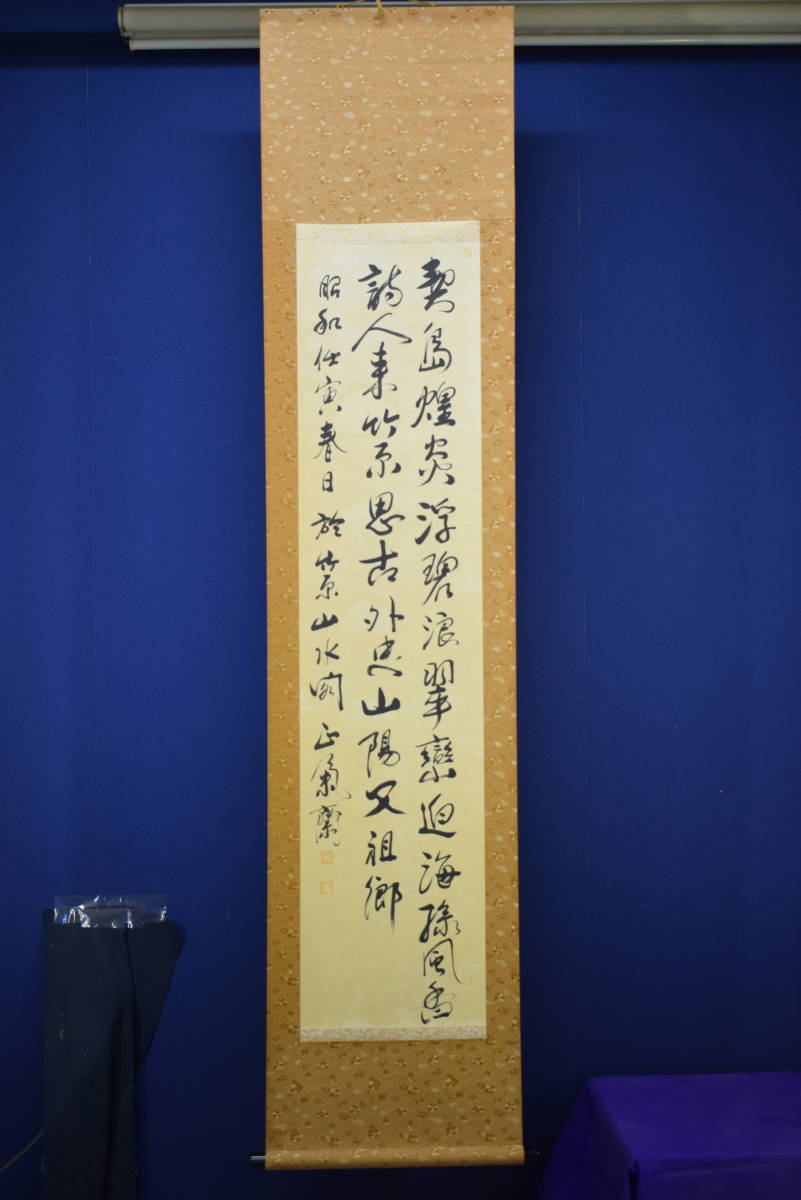 契島煌炎浮碧浪翠巒迫海緑風香
詩人来竹原思古外史山陽父祖郷
昭和壬寅春日於竹原山水閣正氣齋